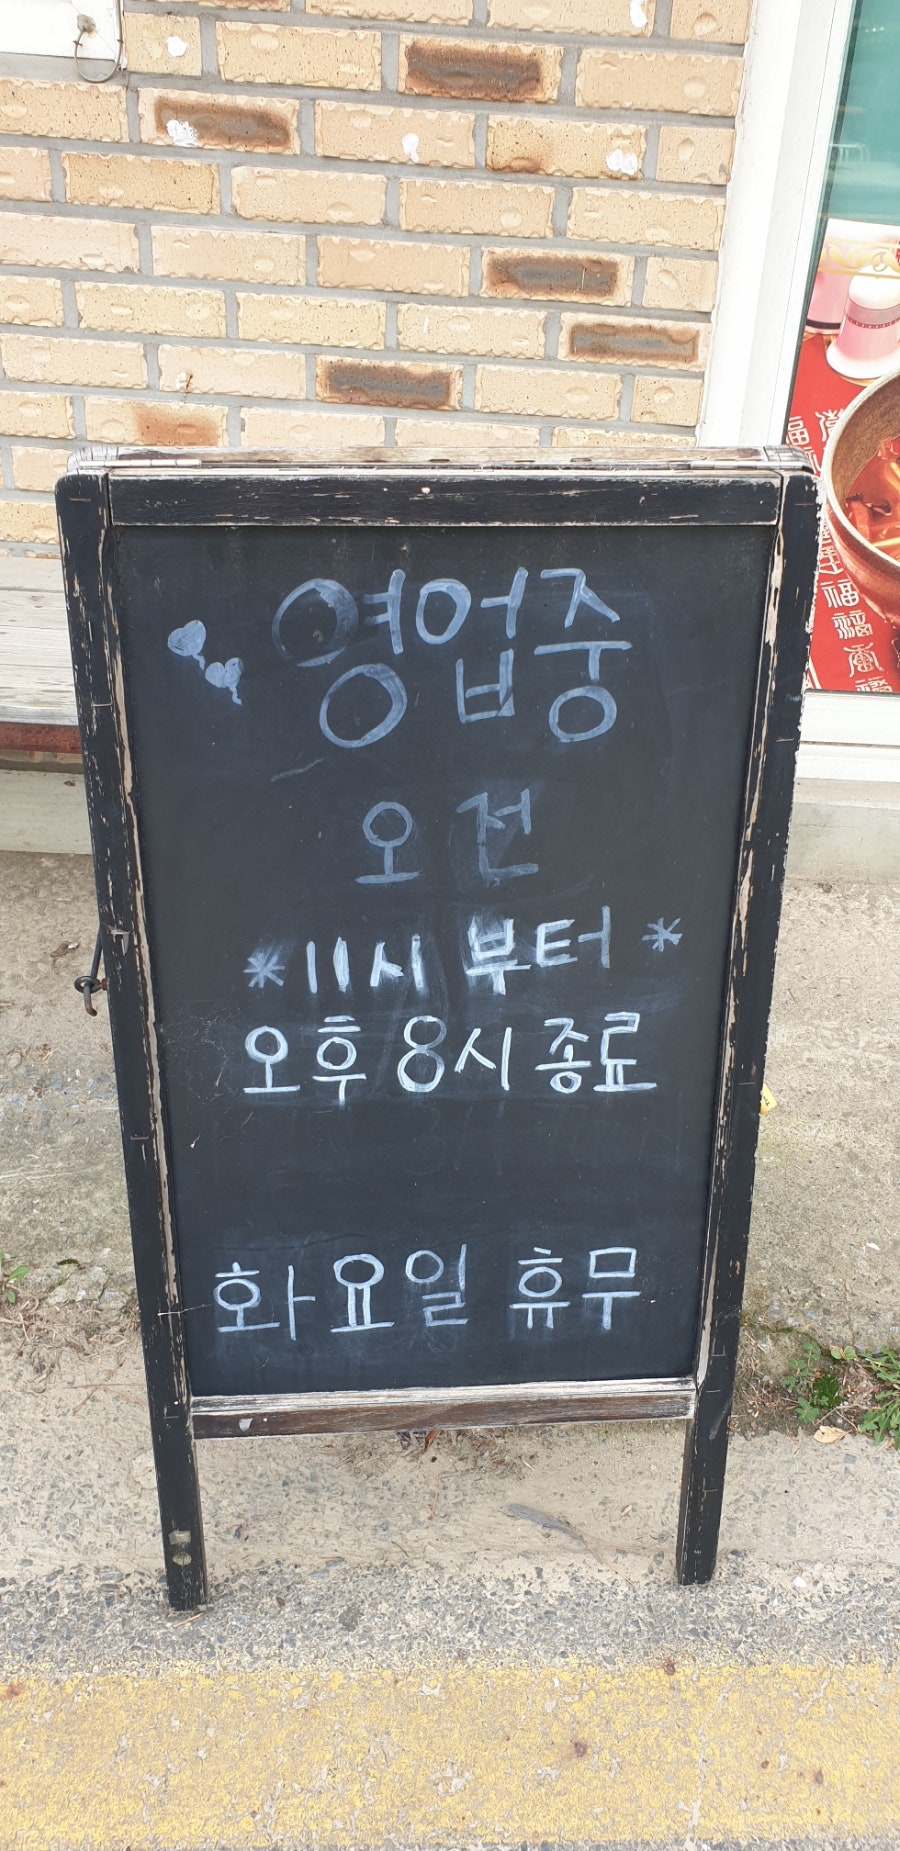 영업중
오전
*11시 부터*
오후 8시 종료
화요일 휴무